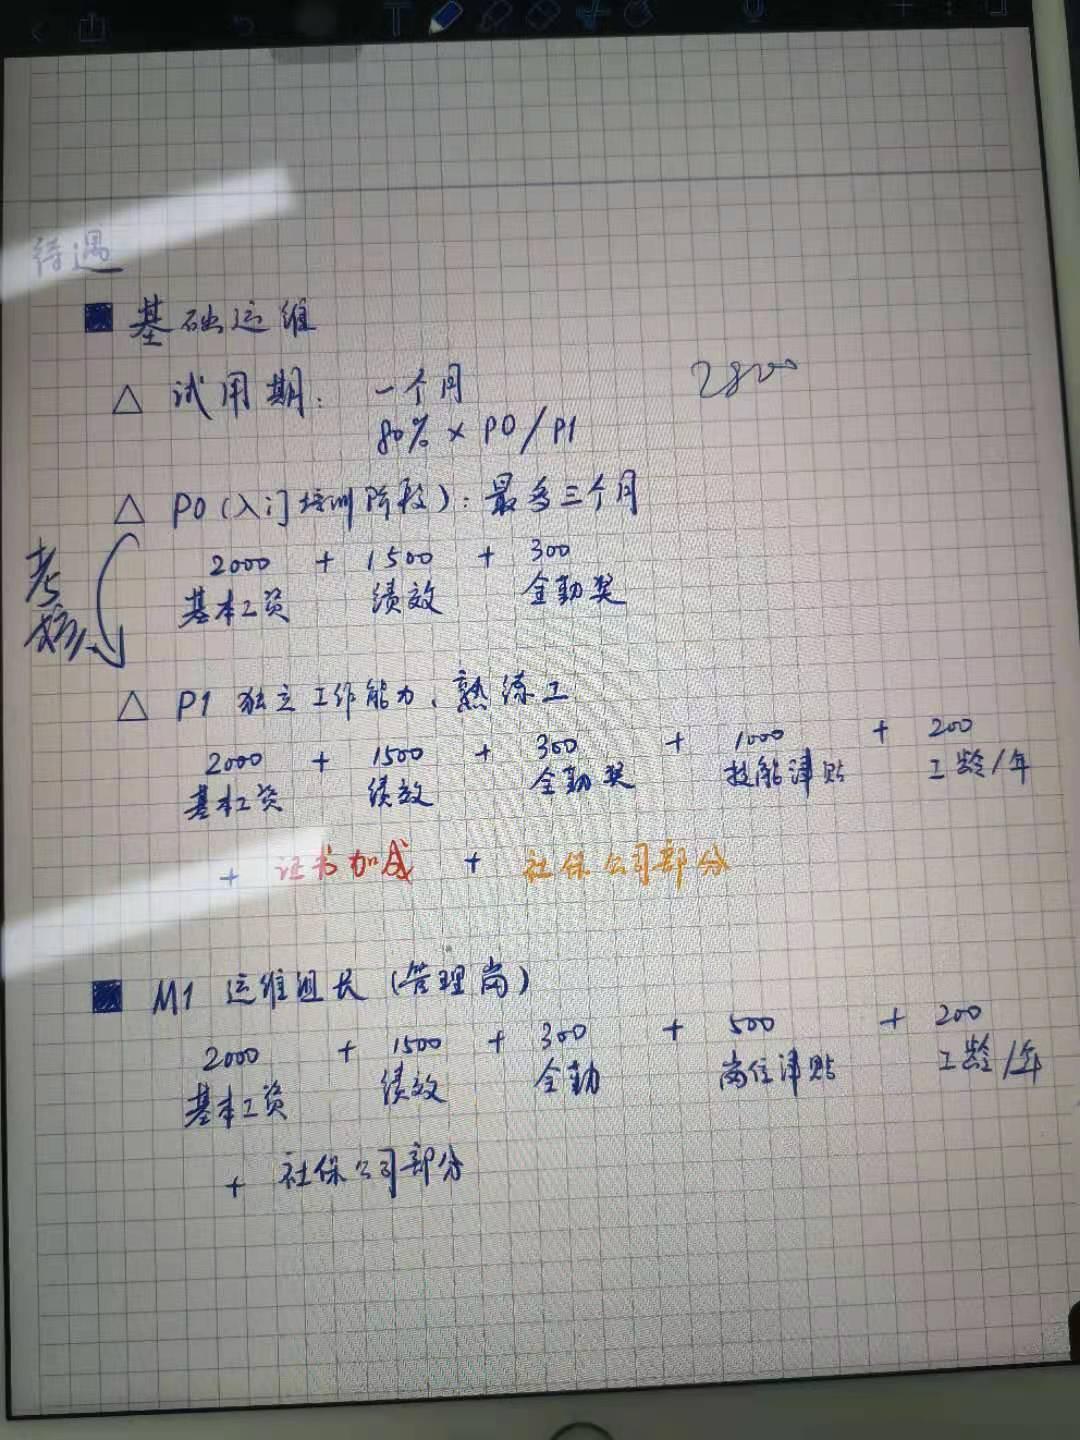 待遇
基础运维
△ 试用期: 一个月
2800
80% × P0/P1
△ P0(入门培训阶段): 最多三个月
考核
2000 + 1500 + 300
基本工资 绩效 全勤奖
△ P1 独立工作能力、熟练工
2000 + 1500 + 300 + 1000 + 200
基本工资 绩效 全勤奖 技能津贴 工龄/年
+ 证书加成 + 社保公司部分
M1 运维组长(管理岗)
2000 + 1500 + 300 + 500 + 200
基本工资 绩效 全勤 岗位津贴 工龄/年
+ 社保公司部分